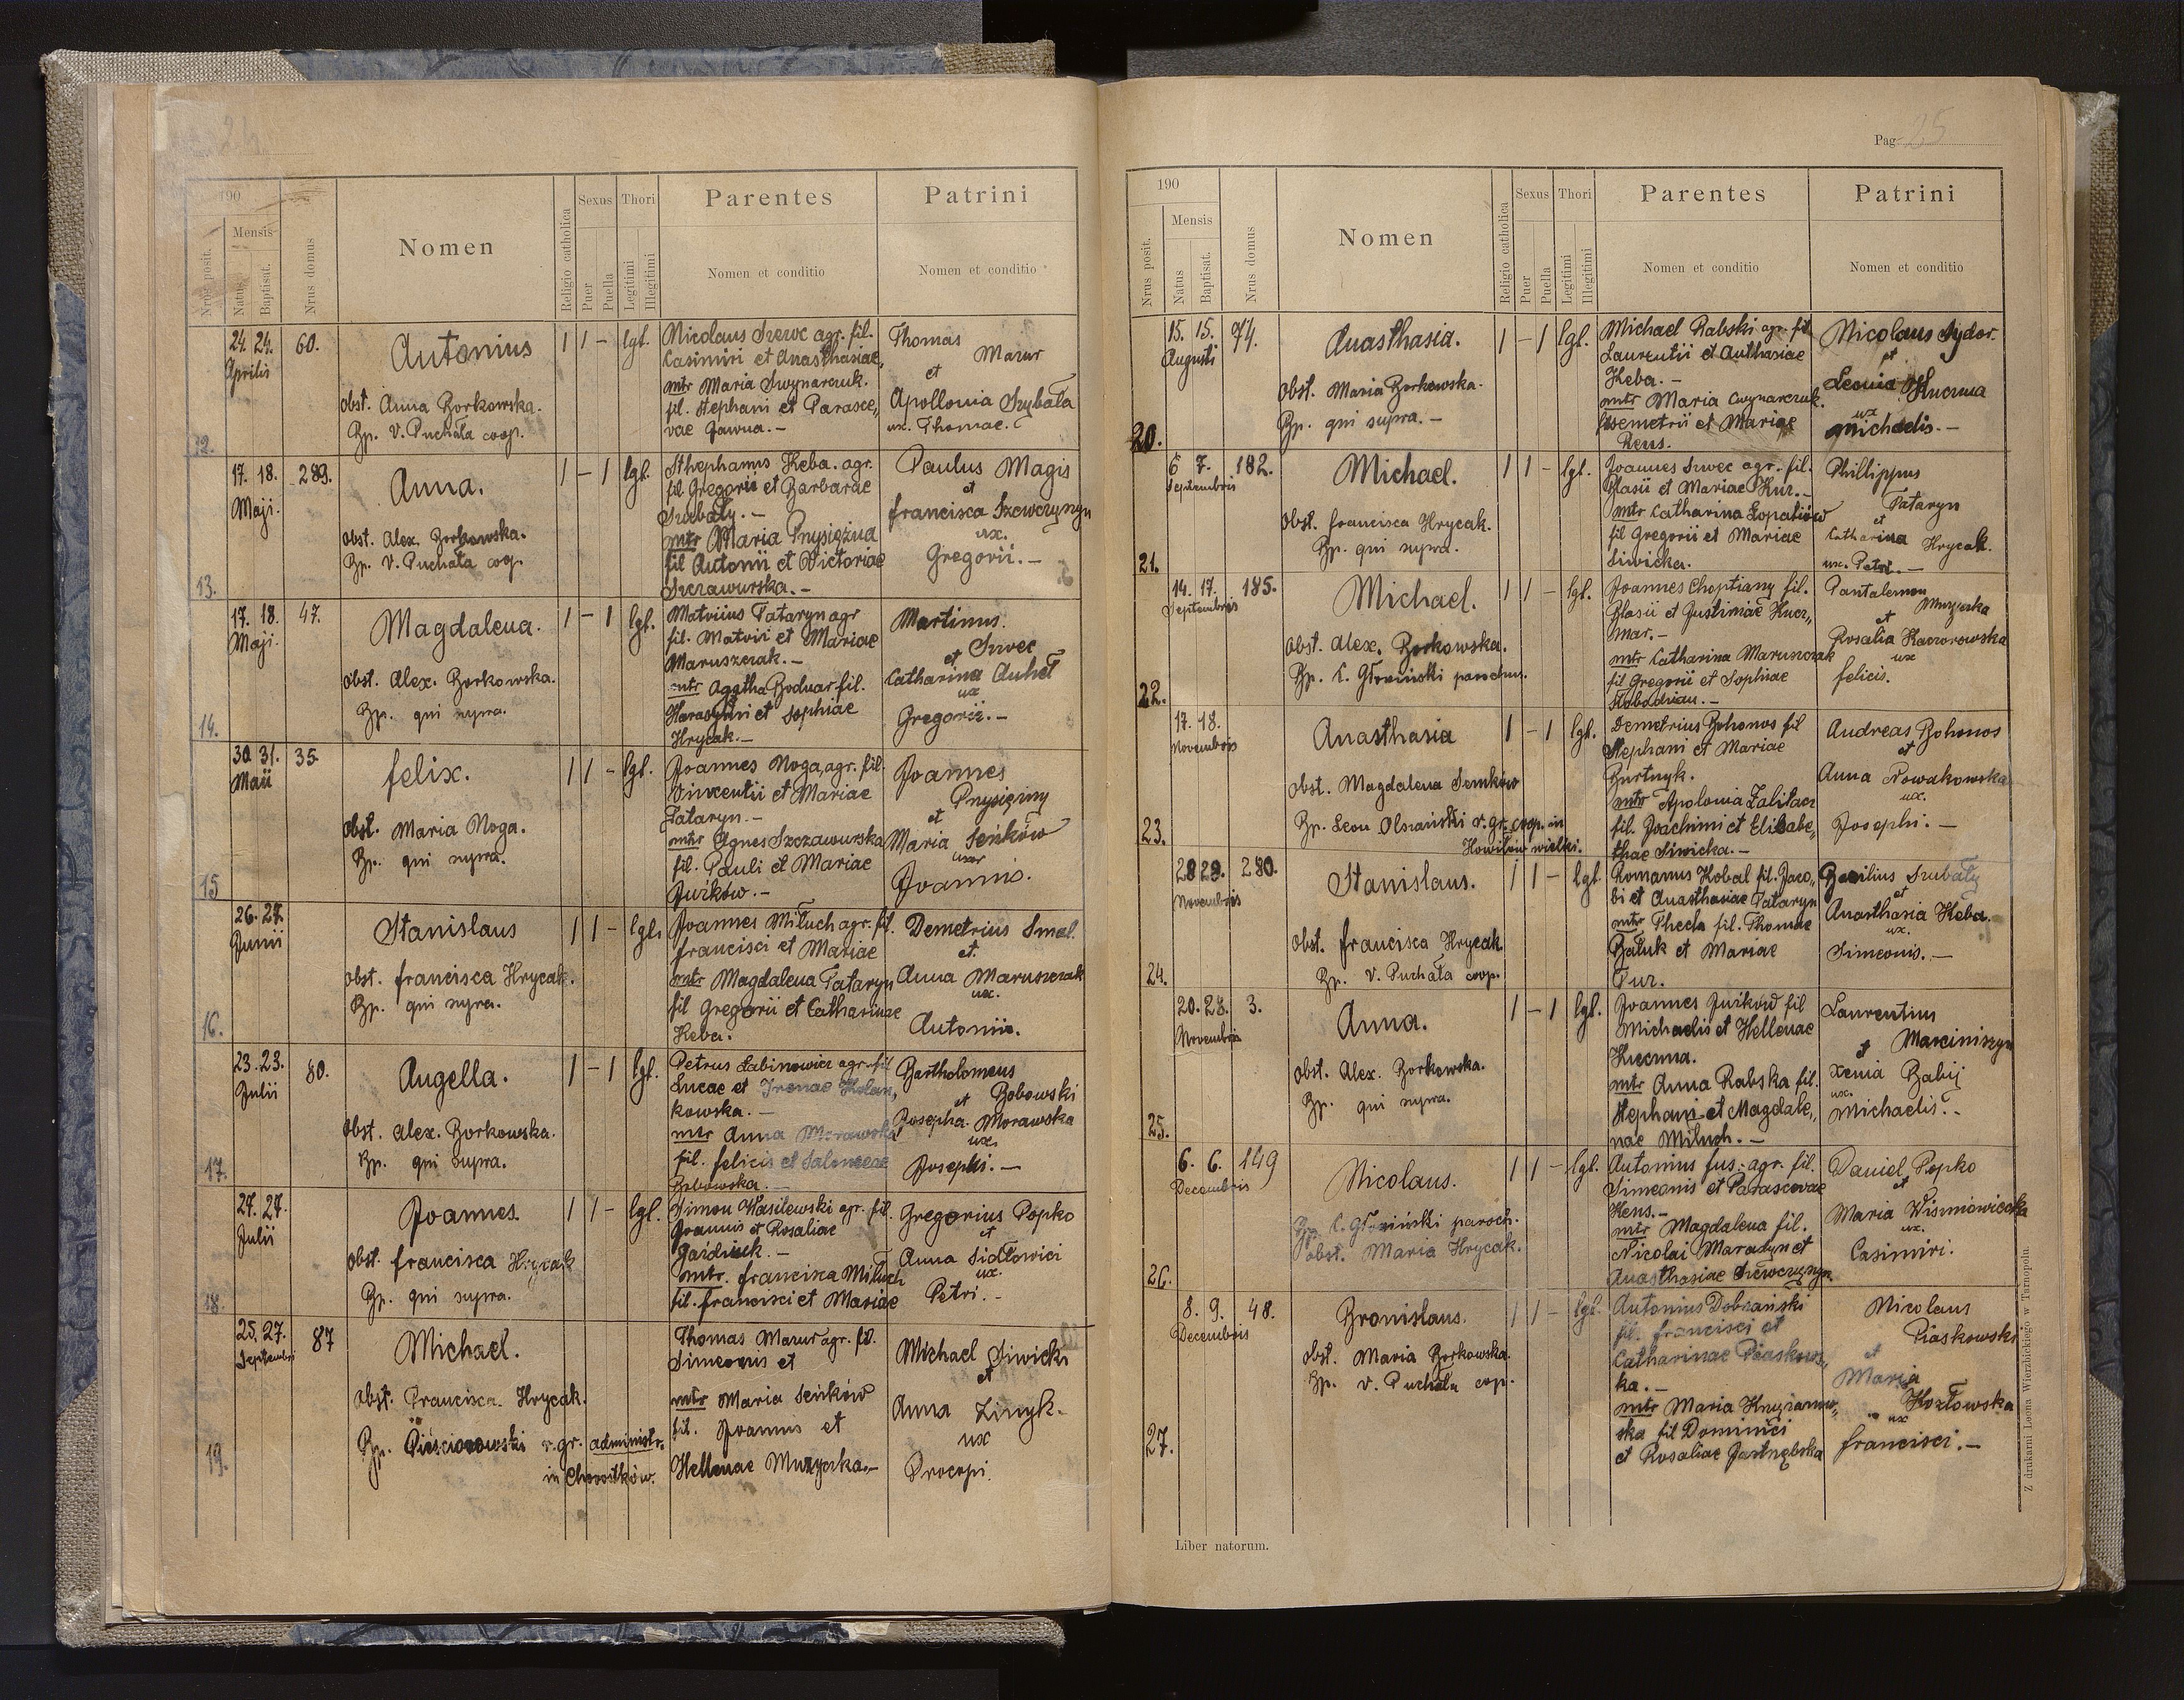 190
Nrus posit.
Mensis
Natus
Baptisat.
Nrus domus
Nomen
Religio catholica
Sexus
Puer
Puella
Thori
Legitimi
Illegitimi
Parentes
Nomen et conditio
Patrini
Nomen et conditio
12.
24. 24.
Aprilis
60.
Antonius
Obst. Anna Borkowska.
Bp. V. Puchała coop.
1 1 - lgt.
Nicolaus Szewc agr. fil.
Casimiri et Anasthasiae,
mtr Maria Swynarczuk.
fil. Stephani et Parasce,,
vae Jawna. -
Thomas
Mazur
et
Apollonia Szybała
ux. Thomae.
13.
17. 18.
Maji.
289.
Anna.
Obst. Alex. Borkowska.
Bp. V. Puchała cop.
1 - 1 lgl.
Sthephanus Heba. agr.
fil. Gregorii et Barbarae
Szubały. -
mtr Maria Przysiężna
fil Antonii et Victoriae
Szczawurska. -
Paulus Magis
et
Francisca Szewczyszyn
ux.
Gregorii. -
14.
17. 18.
Maji.
47.
Magdalena.
Obst. Alex. Borkowska.
Bp. qui supra.
1 - 1 lgl.
Matviius Tataryn agr
fil. Matvii et Mariae
Maruszczak. -
mtr Agatha Bodnar fil.
Harasymi et Sophiae
Hrycak. -
Martinus.
Szwec
et
Catharina Auheł
ux
Gregorii. -
15
30. 31.
Maii
35.
Felix.
Obst. Maria Noga.
Bp. qui supra.
1 1 - lgl.
Joannes Noga, agr. fil.
Vincentii et Mariae
Tataryn. -
mtr Agnes Szczawurska
fil. Pauli et Mariae
Jurków. -
Joannes
Przysiężny
et
Maria Seńków
uxor
Joannis.
16.
26. 27.
Junii
Stanislaus
Obst. Francisca Hrycak.
Bp. qui supra.
1 1 - lgl.
Joannes Miłuch agr. fil.
Francisci et Mariae
mtr Magdalena Tataryn
fil Gregorii et Catharinae
Heba.
Demetrius Smal.
et
Anna Maruszczak
ux.
Antonii.
17.
23. 23.
Julii
80.
Angella.
Obst. Alex. Borkowska.
Bp. qui supra.
1 - 1 lgl.
Petrus Łabinowicz agr. fil
Lucae et Irenae Kolan,
kowska. -
mtr Anna Morawska
fil. Felicis et Salomeae
Bobowska. -
Bartholomeus
Bobowski
et
Josepha Morawska
ux.
Josephi. -
18.
27. 27.
Julii
Joannes.
Obst. Francisca Hrycak
Bp. qui supra.
1 1 - lgl.
Simon Wasilewski agr. fil.
Joannis et Rosaliae
Gajdiuk. -
mtr. Francisca Miłuch
fil. Francisci et Mariae
Gregorius Popko
et
Anna Sidłowici
ux.
Petri. -
19.
25. 27.
Septembri
87
Michael.
Obst. Francisca. Hrycak.
Bp. Pieściorowski r. gr. administr.
in Chorostków.
Thomas Mazur agr. fil.
Simeonis et
mtr Maria Seńków
fil. Joannis et
Hellenae Muzyczka. -
Michael Siwicki
et
Anna Zinyk.
ux
Procopi.
Pag 25
190
Nrus posit.
Mensis
Natus
Baptisat.
Nrus domus
Nomen
Religio catholica
Sexus
Puer
Puella
Thori
Legitimi
Illegitimi
Parentes
Nomen et conditio
Patrini
Nomen et conditio
20.
15. 15.
Augusti
74.
Anasthasia.
Obst. Maria Borkowska.
Bp. qui supra. -
1 - 1 lgl.
Michael Rabski agr. fil
Laurentii et Anthasiae
Heba. -
mtr Maria Cwynarczuk.
Demetrii et Mariae
Rens.
Nicolaus Sydor.
et
Kuczma
ux
Michaelis. -
21.
6 7.
Septembris
182.
Michael.
Obst. Francisca Hrycak.
Bp. qui supra.
1 1 - lgl.
Joannes Szwec agr. fil.
Blasii et Mariae Kur. -
mtr Catharina Łopatiów
fil Gregorii et Mariae
Siwicka.
Phillippus
Tataryn
et
Catharina Hrycak.
ux. Petri. -
22.
14. 17.
Septembris
185.
Michael.
Obst. Alex. Borkowska.
Bp. C. Głoziński parochus.
1 1 - lgl.
Joannes Choptiany fil.
Blasii et Justiniae Kucz,,
mar. -
mtr Catharina Maruszczak
fil Gregorii et Sophiae
Słobodzian. -
Pantalemon
Muzyczka
et
Rosalia Kaczorowska
ux
Felicis.
23.
17. 18.
Novembris
Anasthasia
Obst. Magdalena Semków
Bp. Leon Olszański r. gr. coop. in
Howiłów wielki.
1 - 1 lgl.
Demetrius Bohonos fil
Stephani et Mariae
Burtnyk.
mtr Apolonia Zalitacz
fil. Joachimi et Elisabe,,
thae Siwicka. -
Andreas Bohonos
et
Anna Nowakowska
ux.
Josephi. -
24.
28 29.
Novembris
280.
Stanislaus.
Obst. Francisca Hrycak.
Bp. V. Puchała coop.
1 1 - lgl.
Romanus Kobal fil. Jaco,,
bi et Anasthasiae Tataryn
mtr Thecla fil. Thomae
Bałuk et Mariae
Tur.
Basilius Szubały
et
Anasthasia Heba.
ux.
Simeonis. -
25.
20. 28.
Novembris
3.
Anna.
Obst. Alex. Borkowska.
Bp. qui supra.
1 - 1 lgl.
Joannes Jurków fil
Michaelis et Hellenae
Kuczma.
mtr Anna Rabska fil.
Stephani et Magdale,,
nae Miłuch. -
Laurentius
Marciniszyn
et
Xenia Babij
ux.
Michaelis. -
26.
6. 6.
Decembris
149
Nicolaus.
Bp. C. Głoziński paroch.
Obst. Maria Hrycak.
1 1 - lgl.
Antonius Fus. agr. fil.
Simeonis et Parascevae
Hens. -
mtr Magdalena fil.
Nicolai Maradyn et
Anasthasiae Szewczyszyn
Daniel Popko
et
Maria Wiśniowiecka
ux.
Casimiri.
27.
8. 9.
Decembris
48.
Bronislaus.
Obst. Maria Borkowska.
Bp. V. Puchała cop.
1 1 - lgl.
Antonius Dobrzański
fil. Francisci et
Catharinae Piaskows,,
ka. -
mtr Maria Krzyżanow,,
ska fil Dominici
et Rosaliae Jastrzębska
Nicolaus
Piaskowski
et
Maria
Kozłowska
ux
Francisci. -
Liber natorum.
Z drukarni Leona Wierzbickiego w Tarnopolu.